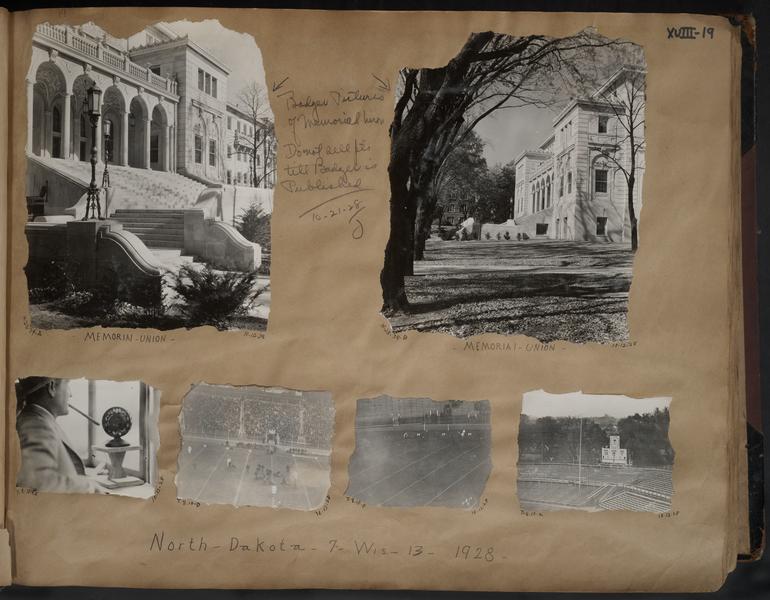 XVIII-19
Badger Pictures
of Memorial Union
Do not sell pts
till Badger is
Published
10-21-28
MEMORIN-UNION-
- MEMORIAL-UNION-
North-Dakota-7-Wis-13-1928-